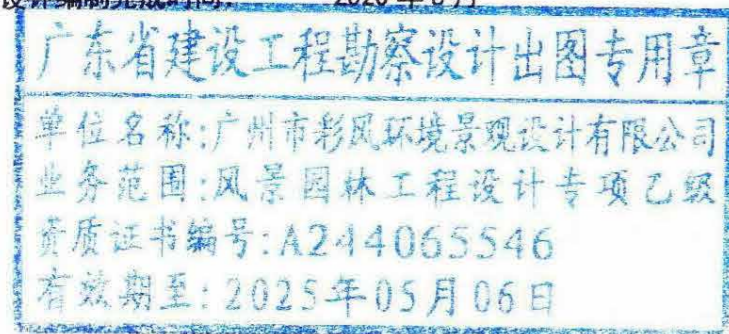 设计编制完成时间: 2020年6月
广东省建设工程勘察设计出图专用章
单位名称:广州市彩风环境景观设计有限公司
业务范围:风景园林工程设计专项乙级
资质证书编号:A244065546
有效期至:2025年05月06日